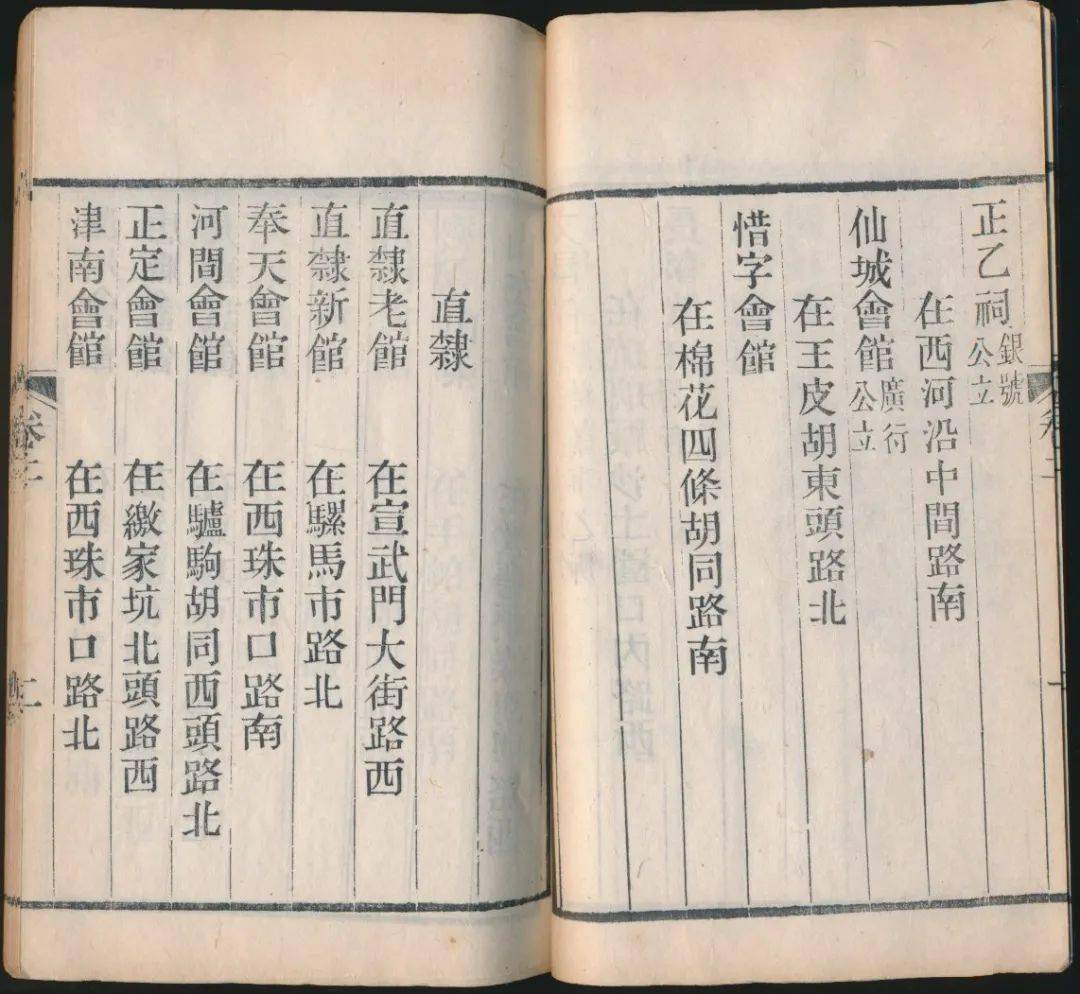 正乙祠銀號公立
在西河沿中間路南
仙城會館廣行公立
在王皮胡東頭路北
惜字會館
在棉花四條胡同路南
直隸
直隸老館 在宣武門大街路西
直隸新館 在騾馬市路北
奉天會館 在西珠市口路南
河間會館 在驢駒胡同西頭路北
正定會館 在繳家坑北頭路西
津南會館 在西珠市口路北
卷二
二